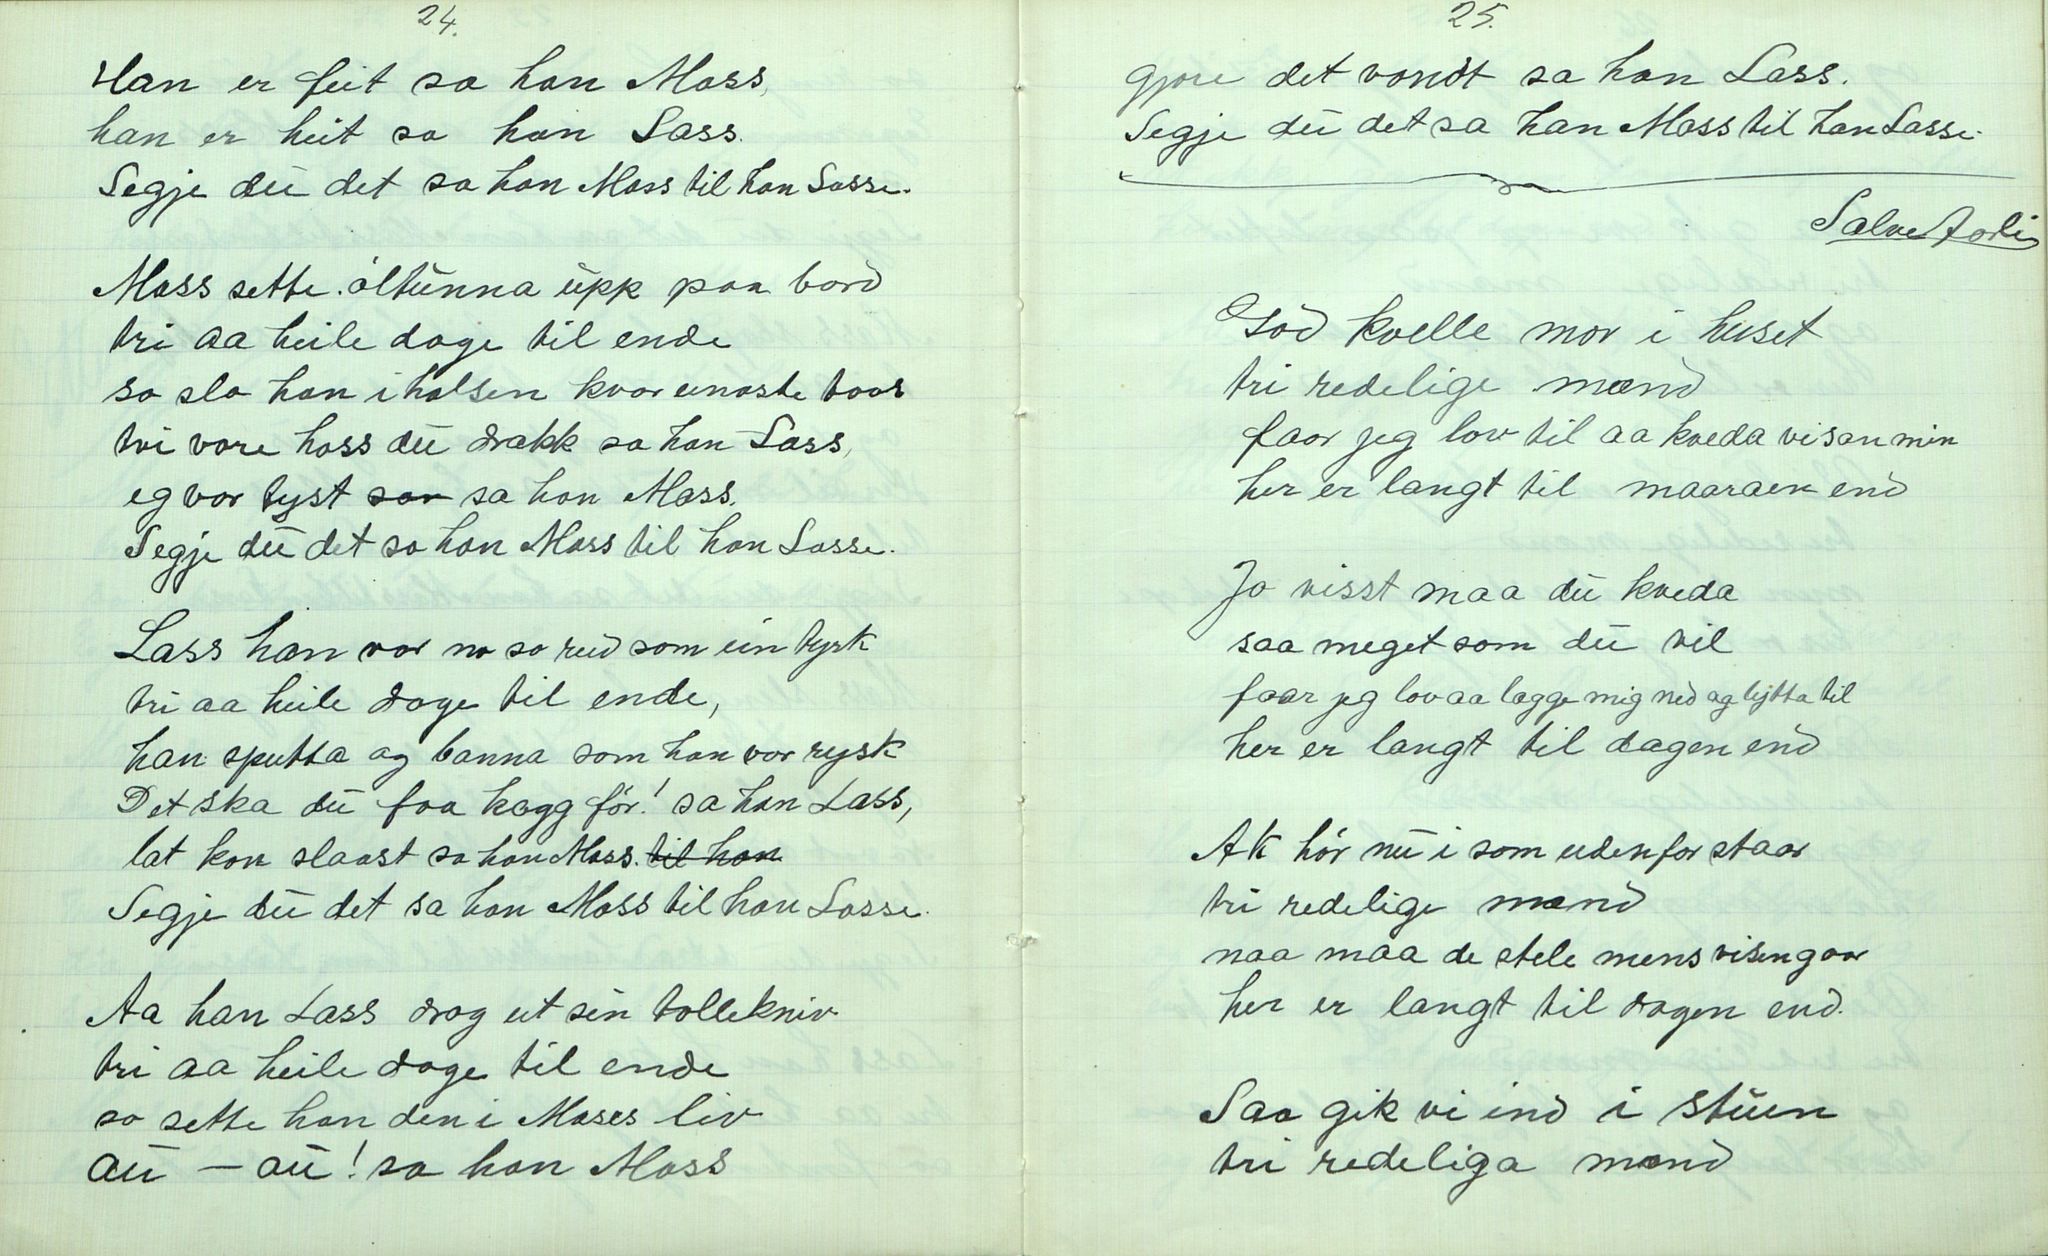 24.
Han er feit sa han Mass,
han er heit sa han Lass.
Segje du det sa han Mass til han Lasse.
Mass sette øltunna upp paa bord
tri aa heile dage til ende
so slo han i halsen kvar einaste taar
tvi vare hass du drakk sa han Lass,
eg var tyst sa han Mass.
Segje du det sa han Mass til han Lasse.
Lass han var no so reid som ein tysk
tri aa heile dage til ende,
han sputta og banna som han var rysk
Det ska du faa kagg før! sa han Lass,
lat kon slaast sa han Mass. til han
Segje du det sa han Mass til han Lasse.
Aa han Lass drog ut sin tollekniv
tri aa heile dage til ende
so sette han den i Mases liv
au – au! sa han Mass
25.
gjore det vondt sa han Lass.
Segje du det sa han Mass til han Lasse.
Salve Aarli
God kvelle mor i huset
tri redelige mænd
faar jeg lov til aa kveda visan min
her er langt til maaraen end
Jo visst maa du kveda
saa meget som du vil
faar jeg lov aa lægge mig ned og lytta til
her er langt til dagen end
Ak hør nu i som udenfor staar
tri redelige mænd
naa maa de stele mens visen gaar
her er langt til dagen end.
Saa gik vi ind i stuen
tri redeliga mænd